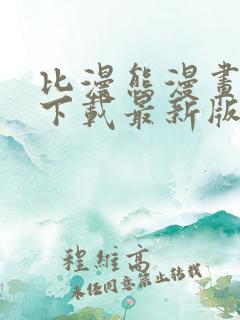 比漫熊漫畫
下載最新版
程維高
未经同意禁止转载